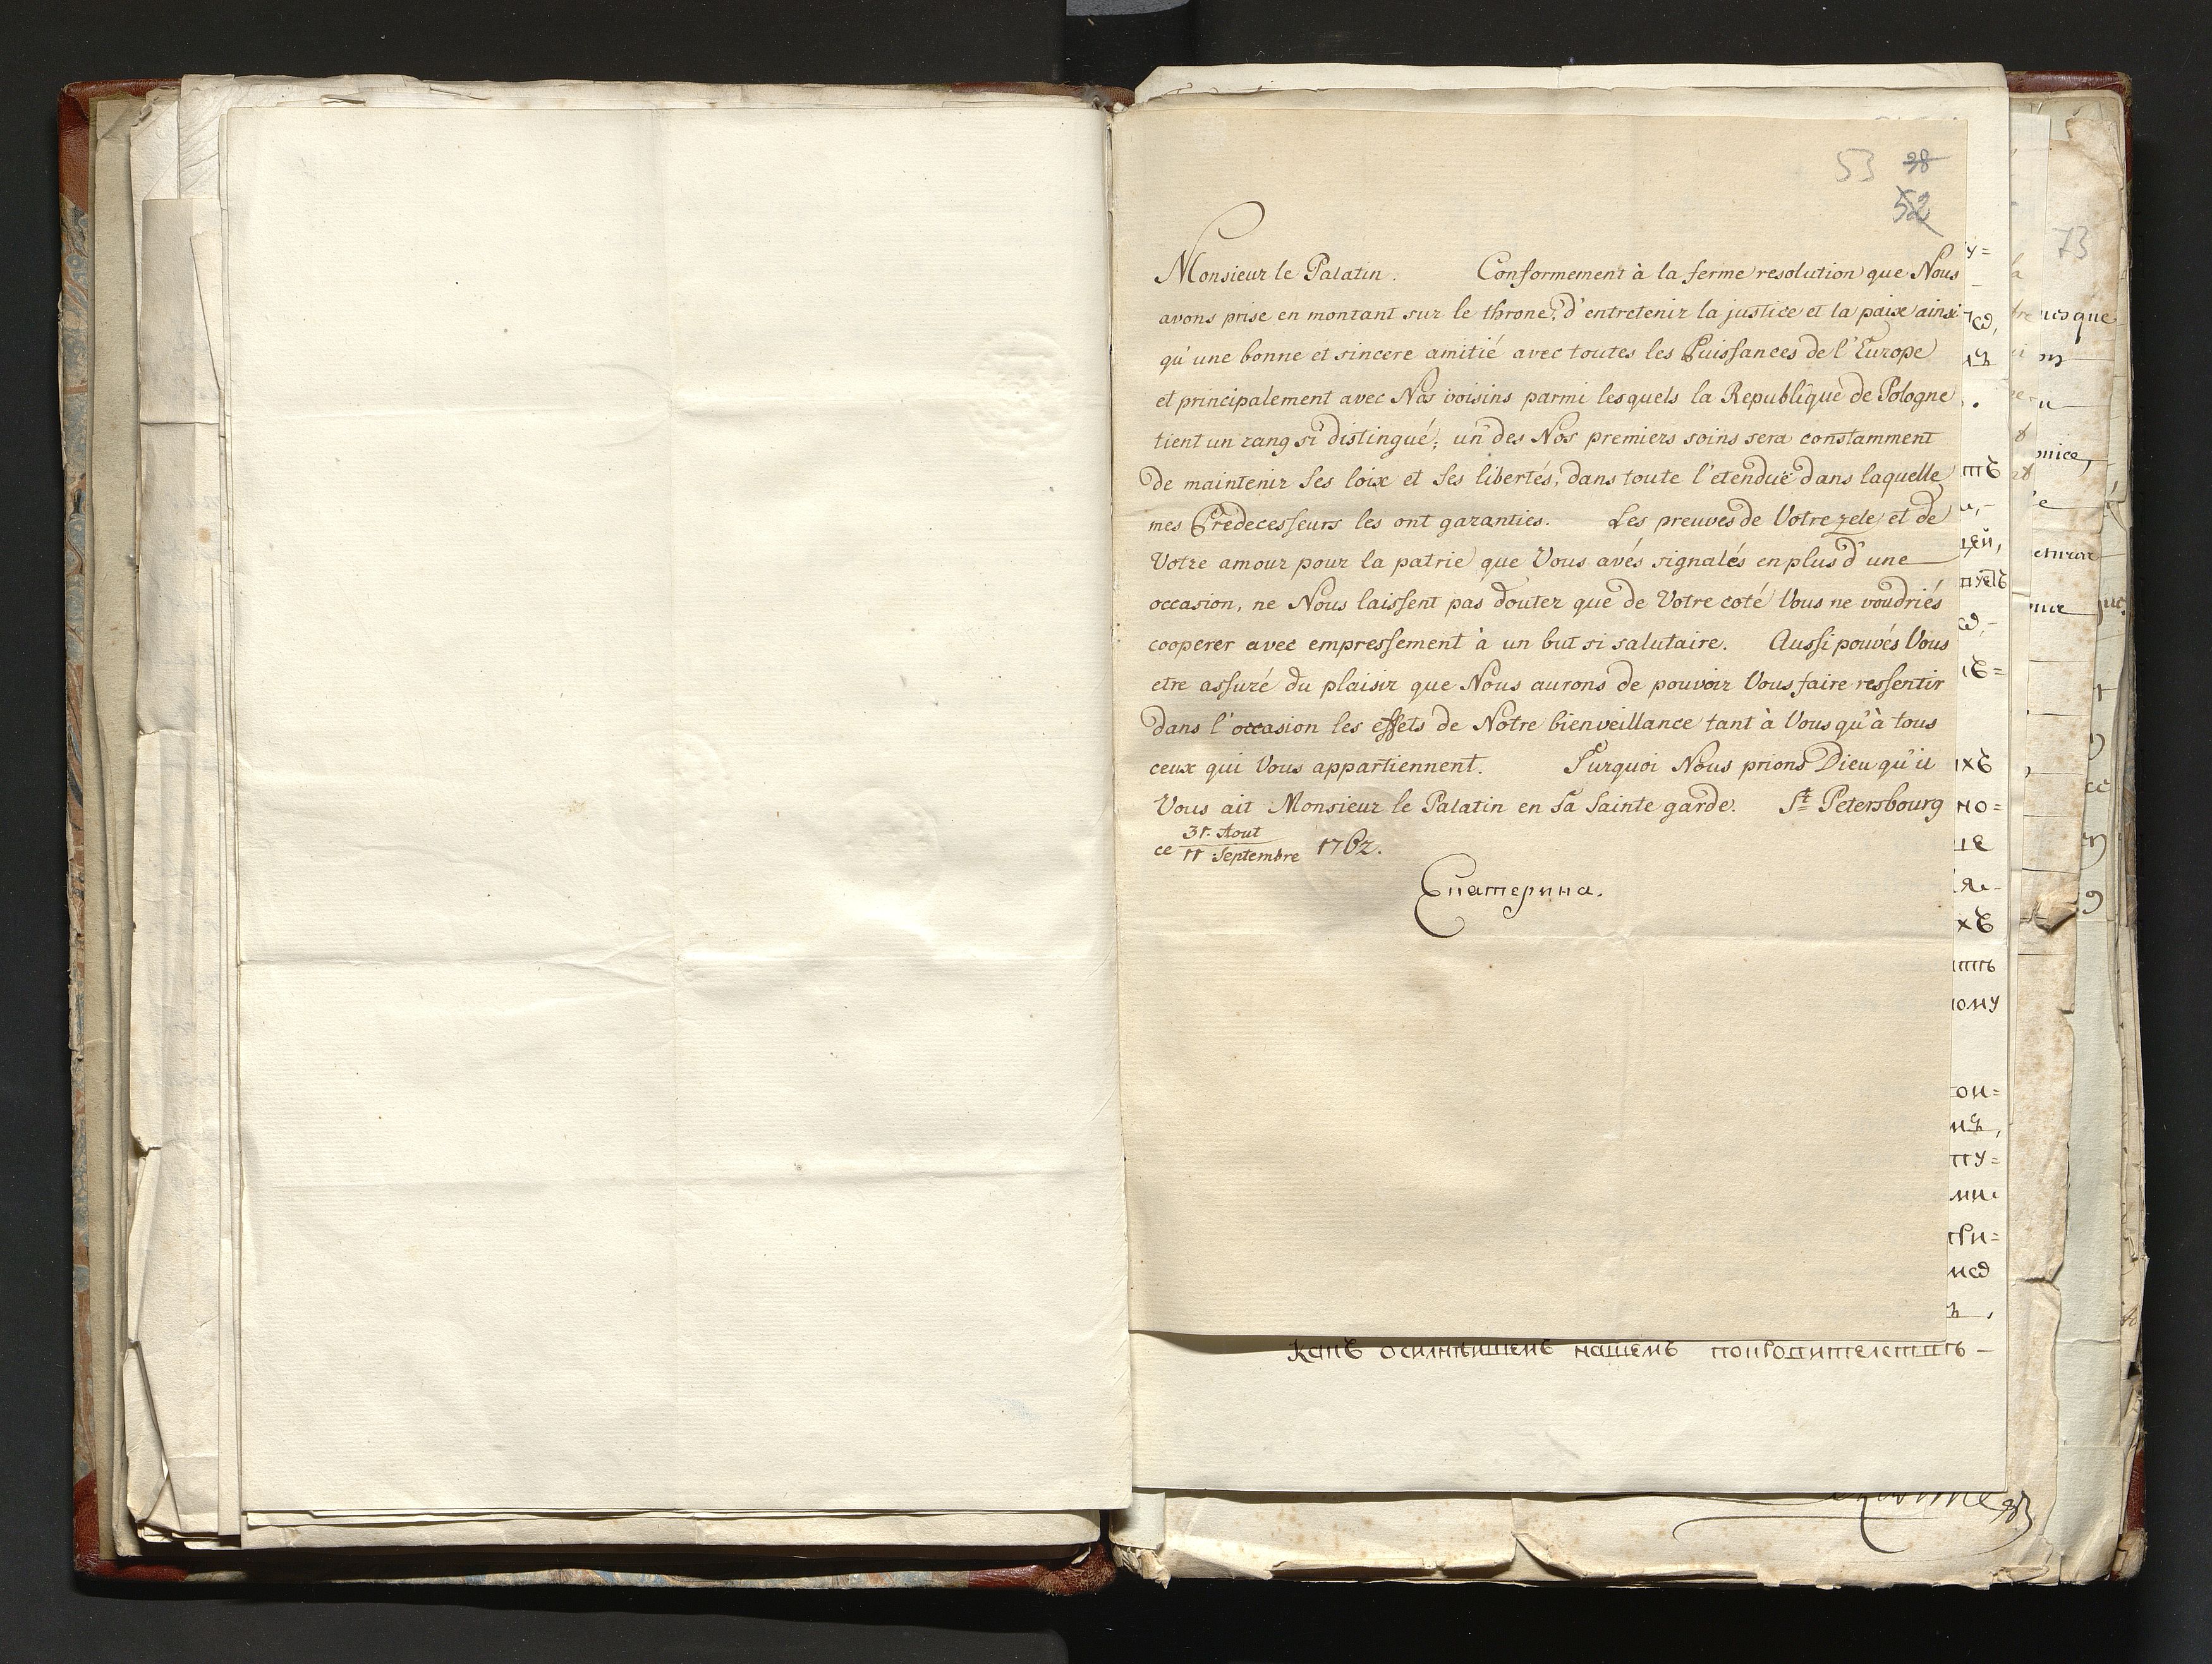 53 38
52
73
Monsieur le Palatin. Conformement à la ferme resolution que Nous
avons prise en montant sur le throne, d'entretenir la justice et la paix ainsi
qu'une bonne et sincere amitié avec toutes les Puissances de l'Europe
et principalement avec Nos voisins parmi lesquels la Republique de Pologne
tient un rang si distingué; un des Nos premiers soins sera constamment
de maintenir Ses loix et Ses libertés, dans toute l'etenduë dans laquelle
mes Prédecesseurs les ont garanties. Les preuves de Votre zele et de
Votre amour pour la patrie que Vous avés signalés en plus d'une
occasion, ne Nous laissent pas douter que de Votre coté Vous ne voudriés
cooperer avec empressement à un but si salutaire. Aussi pouvés Vous
etre assuré du plaisir que Nous aurons de pouvoir Vous faire ressentir
dans l'occasion les effets de Notre bienveillance tant à Vous qu'à tous
ceux qui Vous appartiennent. Surquoi Nous prions Dieu qu'il
Vous ait Monsieur le Palatin en Sa Sainte garde. St Petersbourg
ce 31. Aout / 11 Septembre 1762.
Екатерина.